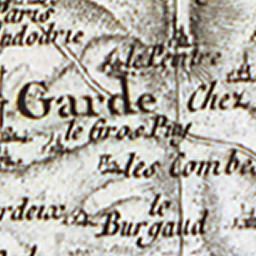 aris
ndodrie
le Pentre
Garde
Chez
le Gros Puy
les Combe
rdeix
le
Burgaud